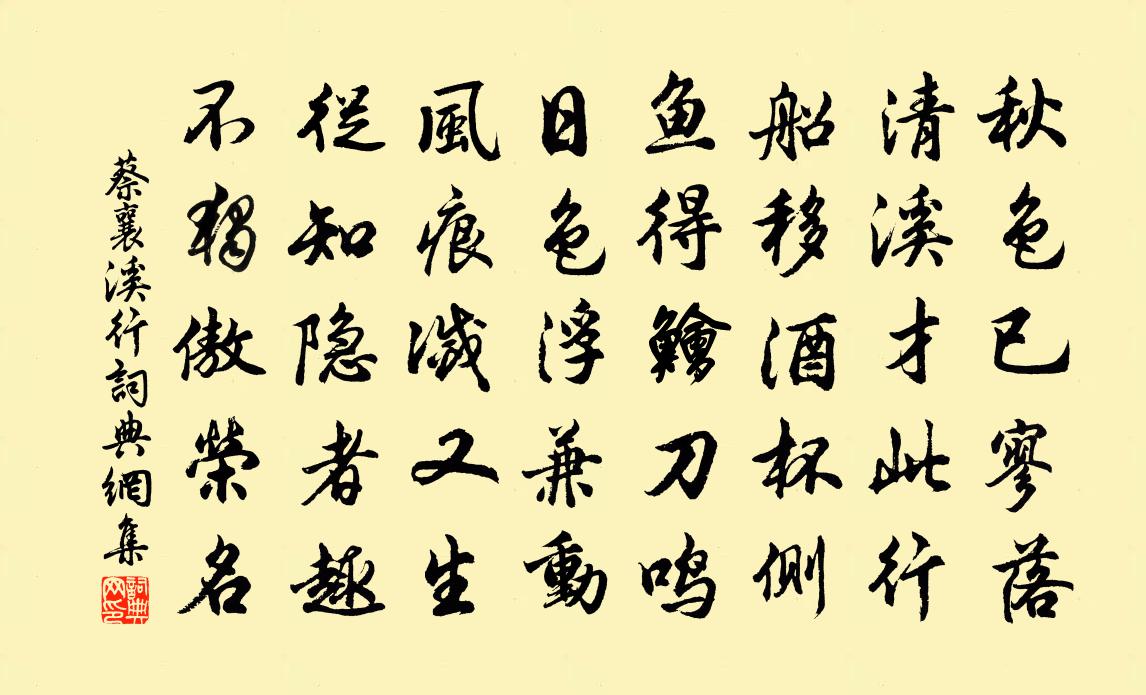 秋色已寥落
清溪才此行
船移酒杯侧
鱼得鱠刀鸣
日色浮兼動
風痕滅又生
從知隐者趣
不獨傲榮名
蔡襄溪行詞典網集
詞典网印